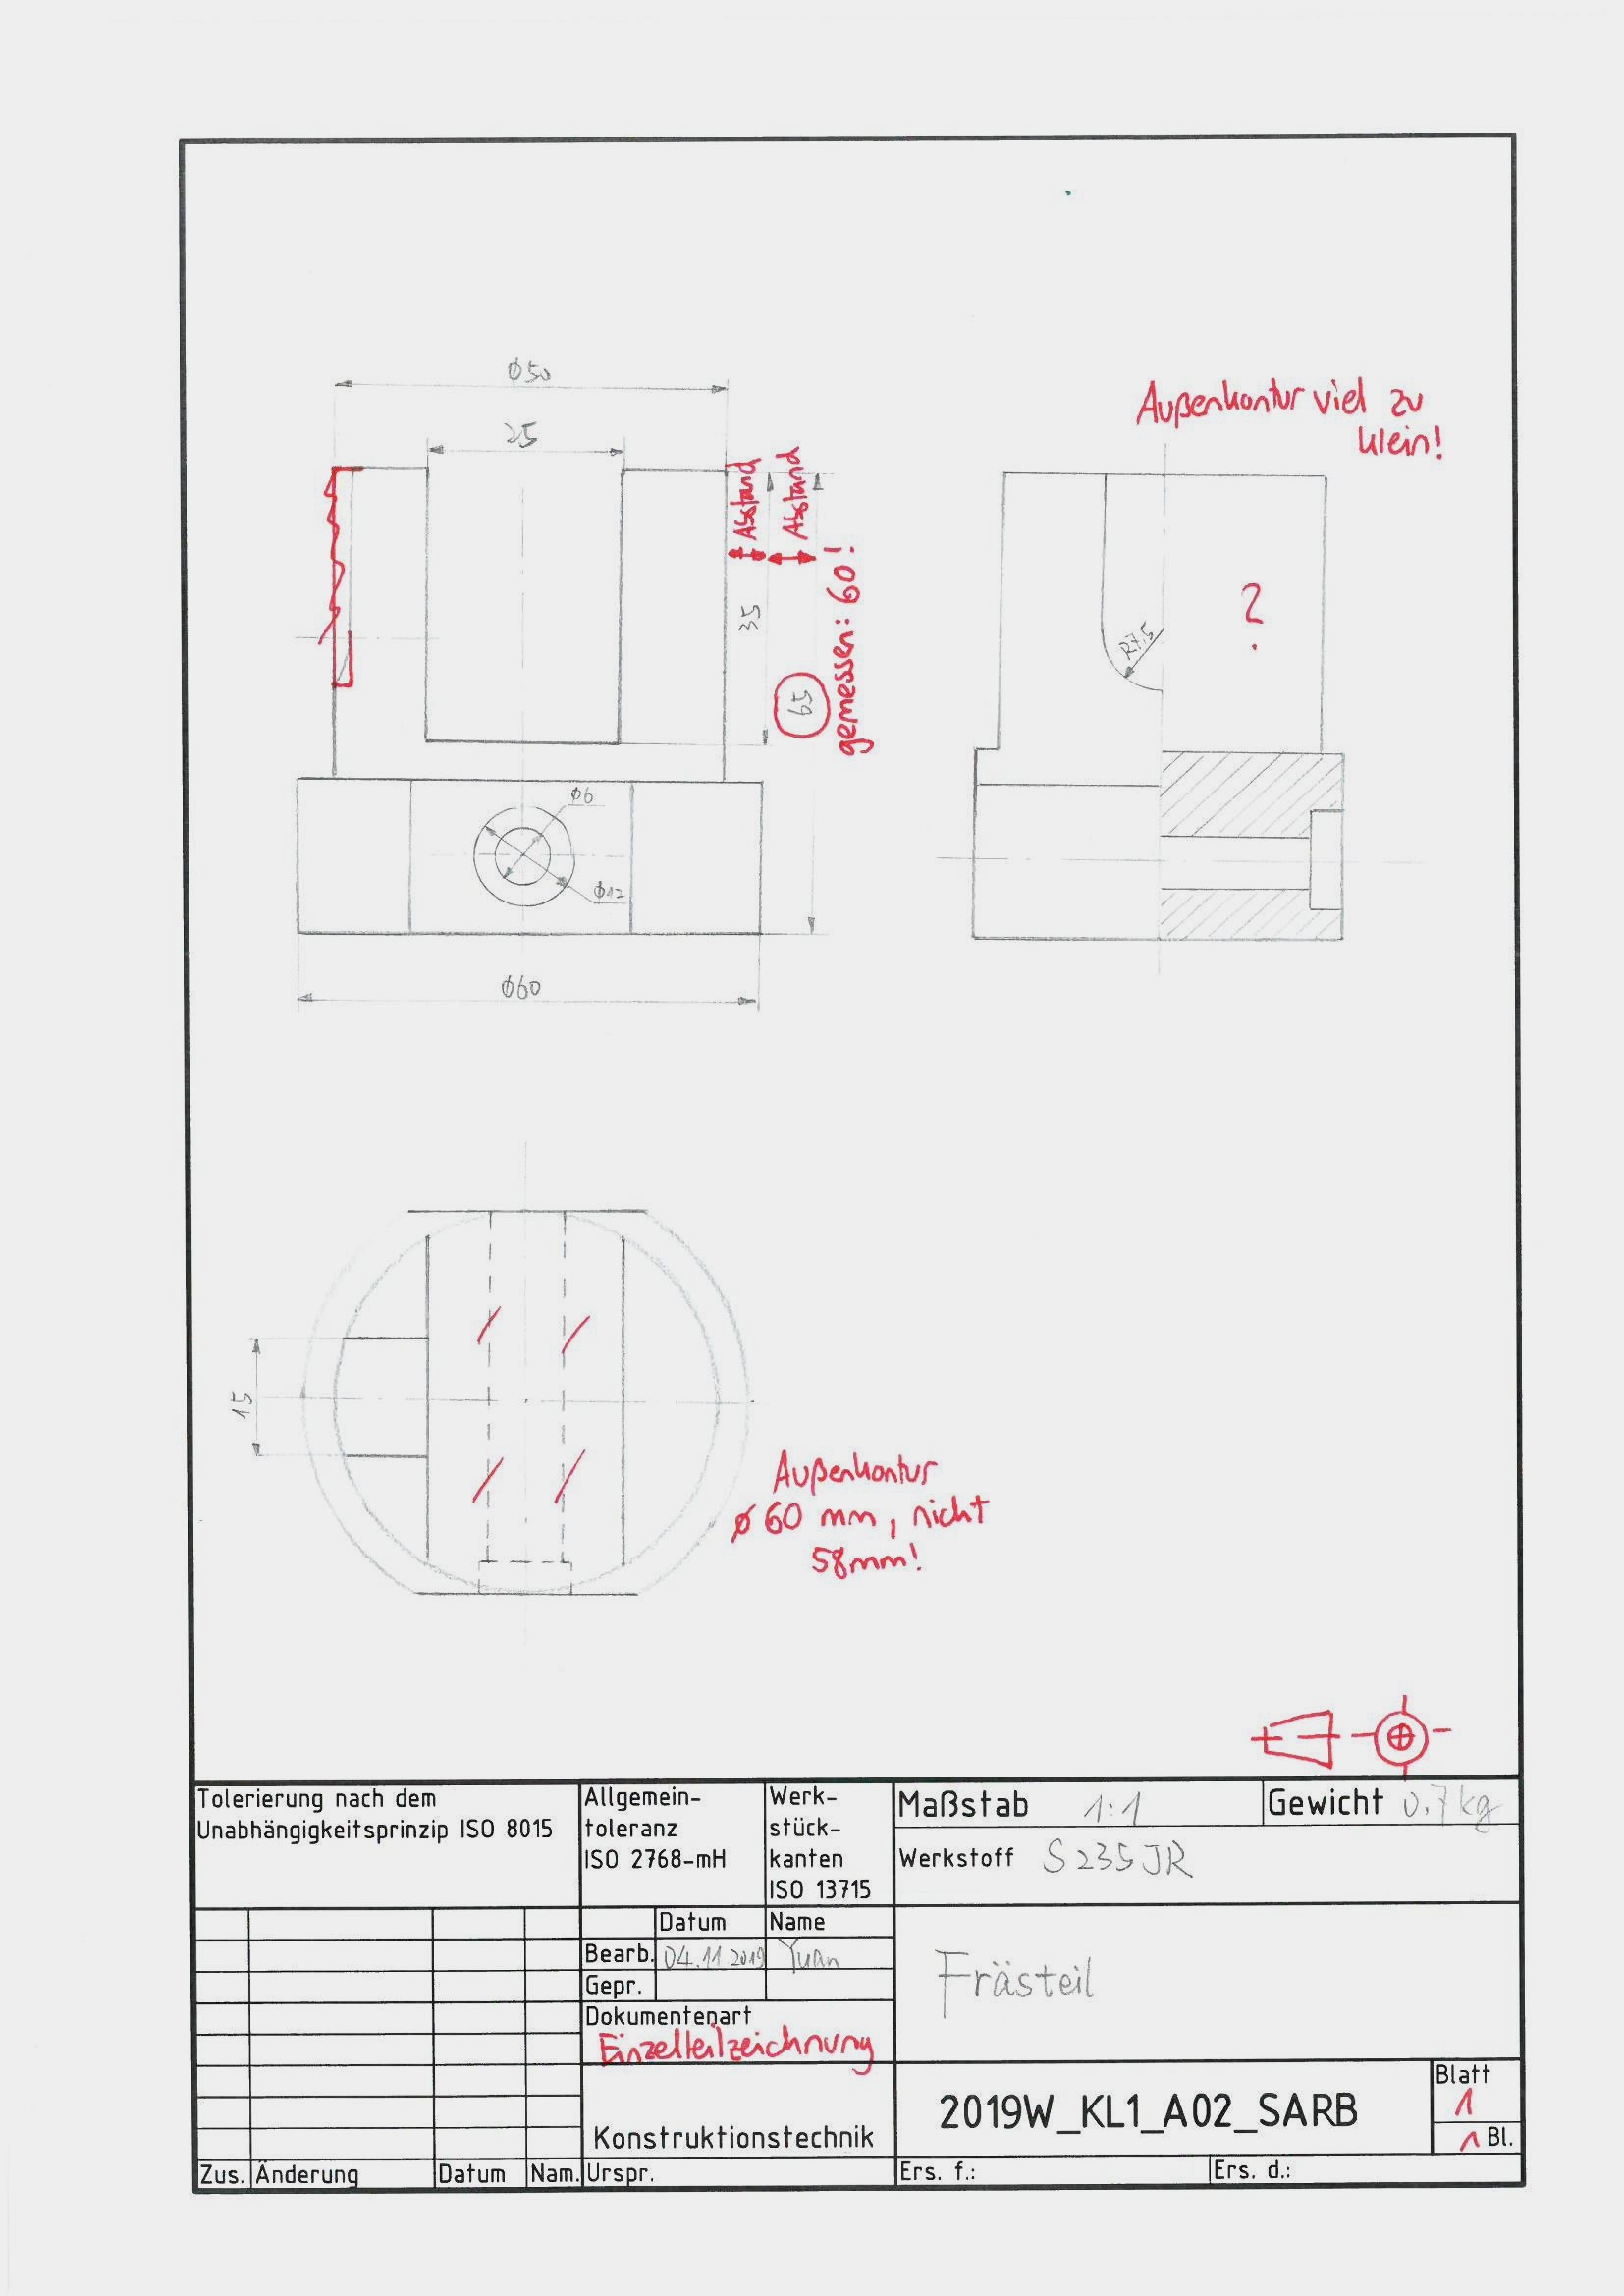 ⌀50
25
Außenkontur viel zu
klein!
Abstand
Abstand
35
65
gemessen: 60!
R7,5
?
⌀6
⌀12
⌀60
15
Außenkontur
⌀ 60 mm, nicht
58mm!
Tolerierung nach dem
Unabhängigkeitsprinzip ISO 8015
Allgemein-
toleranz
ISO 2768-mH
Werk-
stück-
kanten
ISO 13715
Maßstab 1:1
Gewicht 0.7kg
Werkstoff S235JR
Datum Name
Bearb. 04.11.2019 Yuan
Gepr.
Dokumentenart
Einzelteilzeichnung
Frästeil
Konstruktionstechnik
2019W_KL1_A02_SARB
Blatt
1
1 Bl.
Zus. Änderung Datum Nam. Urspr. Ers. f.: Ers. d.: